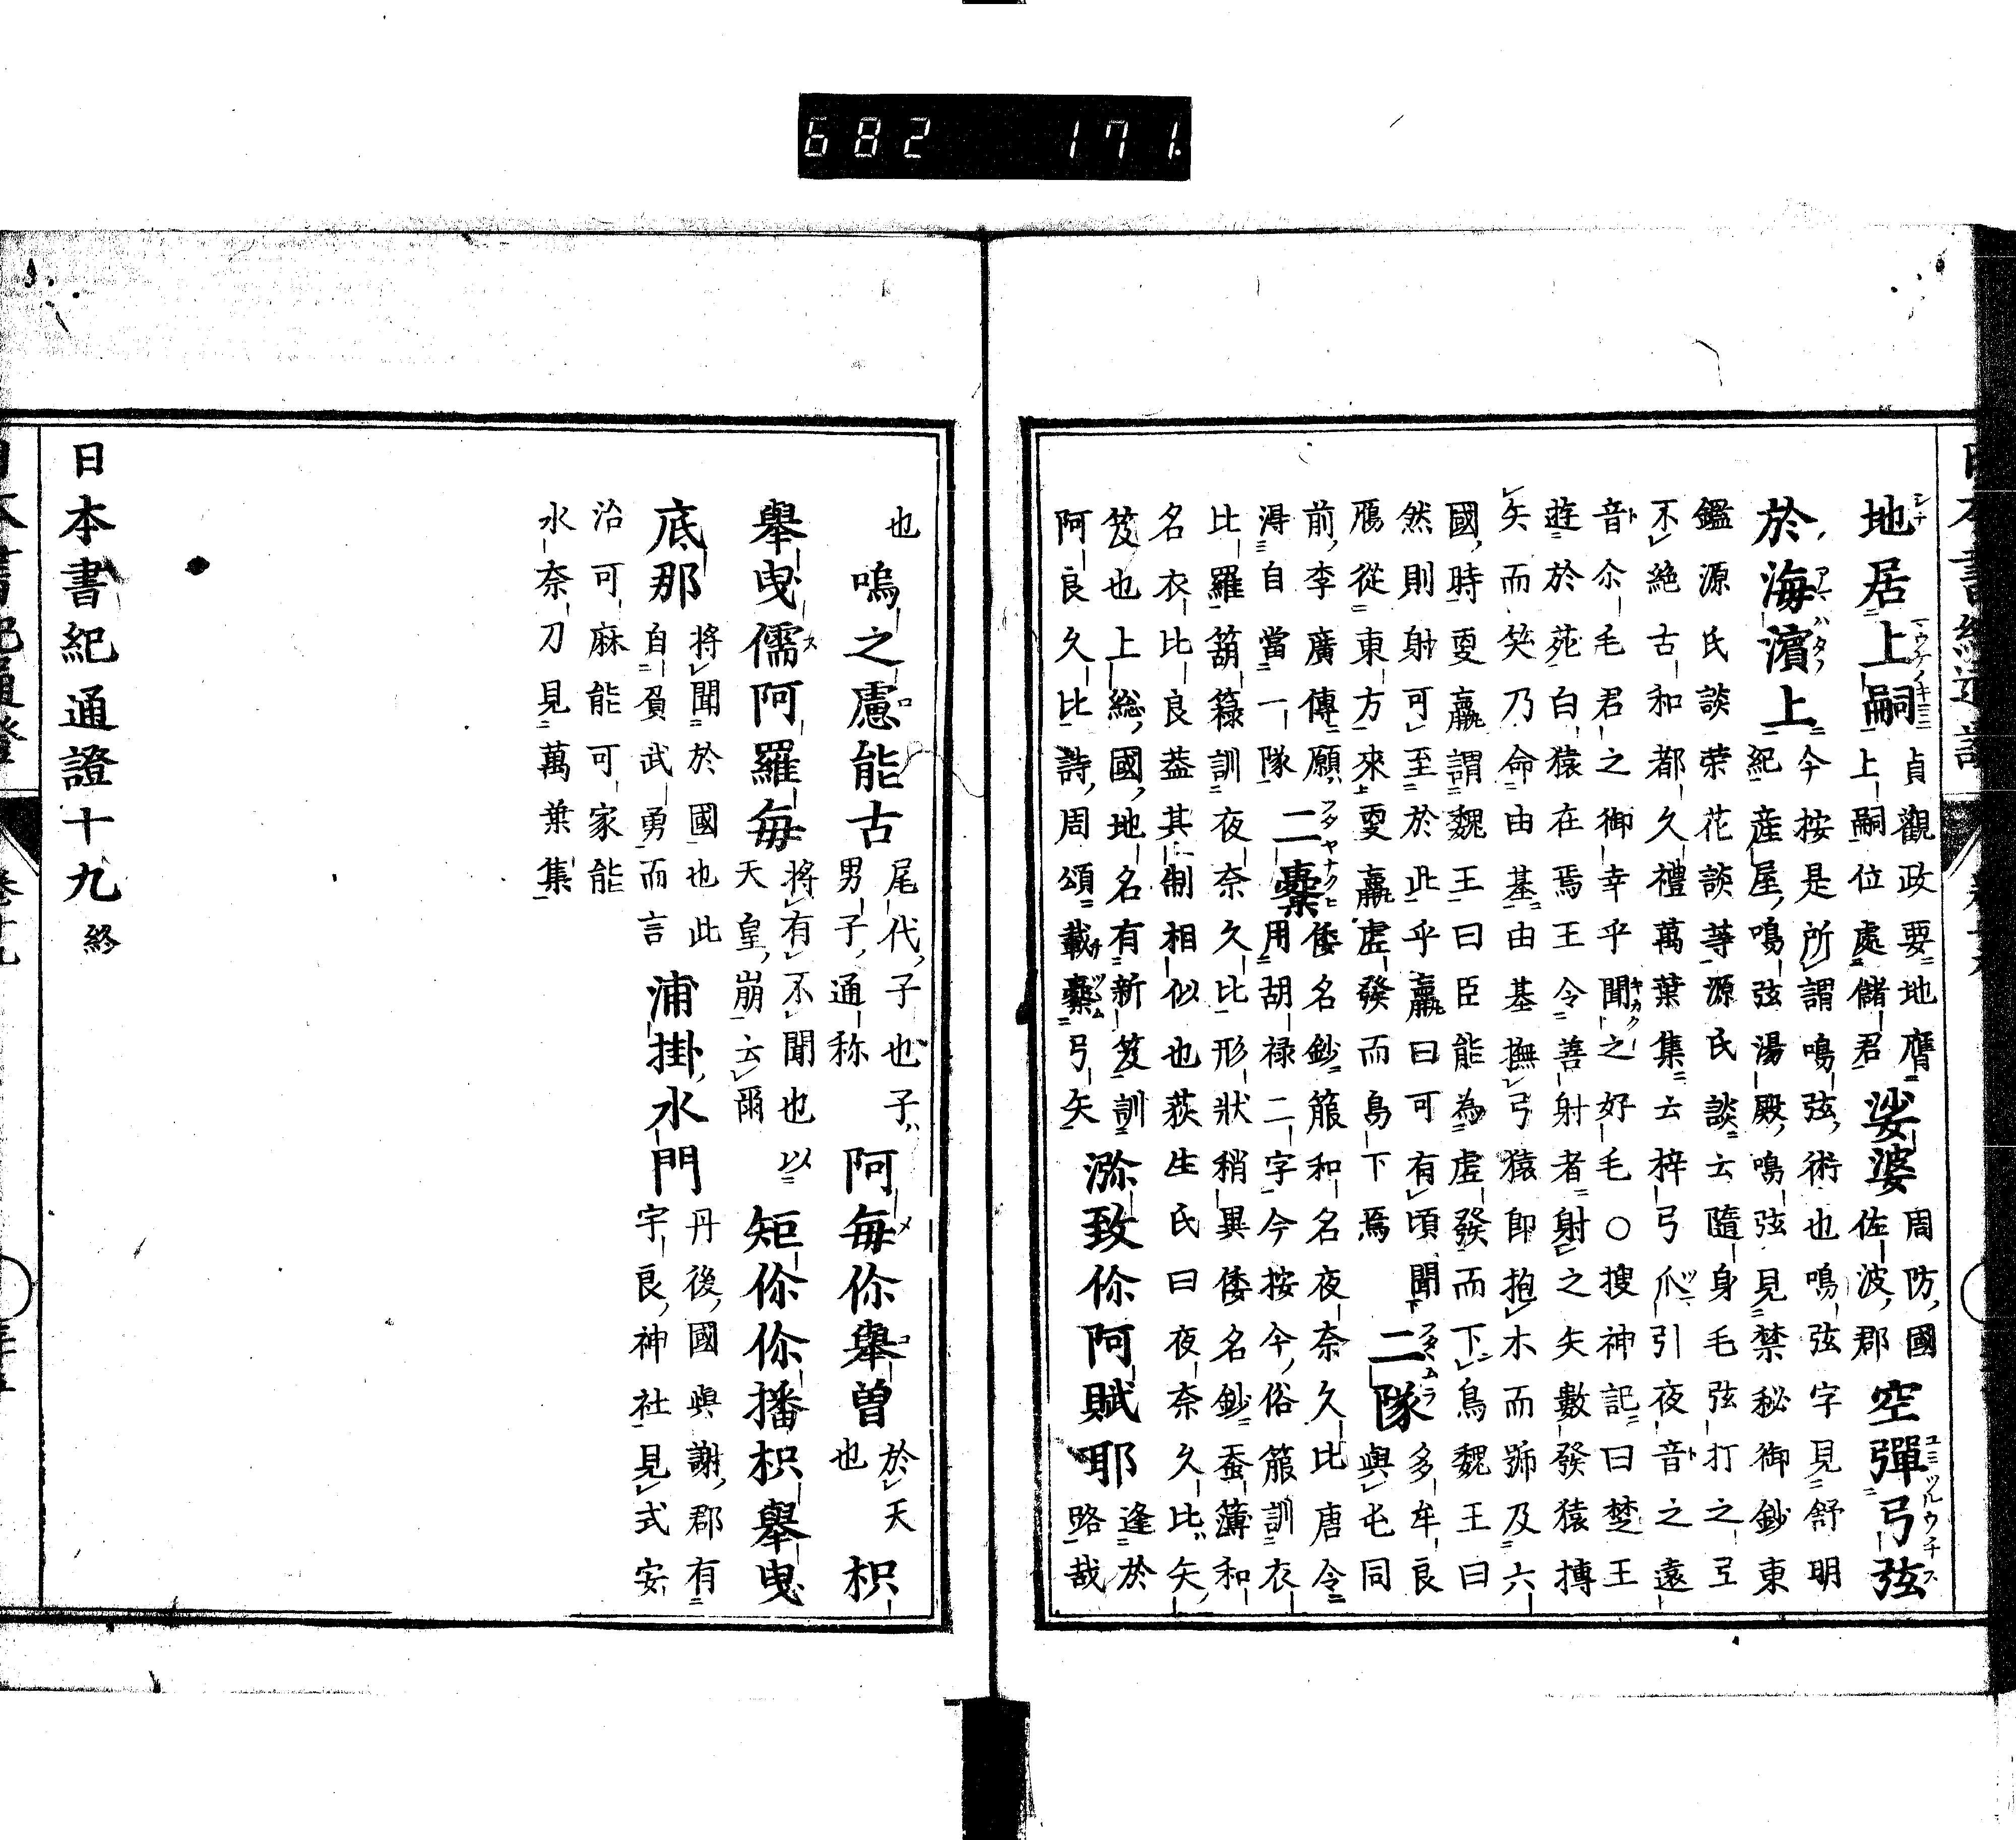 682 171.
地居上嗣 貞觀政要地膺
上嗣位處儲君 娑婆 周防國
佐波郡 空彈弓弦
於海濱上 今按是所謂鳴弦術也鳴弦字見舒明
紀産屋鳴弦湯殿鳴弦見禁秘御鈔東
鑑源氏談榮花談等源氏談云隨身毛弦打之弖
不絶古和都久禮萬葉集云梓弓爪引夜音之遠
音尒毛君之御幸乎聞之好毛○搜神記曰楚王
遊於苑白猿在焉王令善射者射之矢數發猿搏
矢而笑乃命由基由基撫弓猿即抱木而號及六
國時更羸謂魏王曰臣能為虚發而下鳥魏王曰
然則射可至於此乎羸曰可有頃聞
鴈從東方來更羸虚發而鳥下焉 二隊 多牟良
與屯同
前李廣傳願
得自當一隊 二櫜 倭名鈔箙和名夜奈久比唐令
用胡禄二字今按今俗箙訓衣
比羅葫籙訓夜奈久比形狀稍異倭名鈔蚕簿和
名衣比良葢其制相似也荻生氏曰夜奈久比矢
笈也上総國地名有新笈訓
阿良久比詩周頌載櫜弓矢 瀰致伱阿賦耶 逢於
路哉
也 嗚之慮能古 尾代子也子
男子通称 阿毎伱舉曾 於天
也 枳
舉曳儒阿羅毎 將有不聞也
天皇崩云爾 矩伱伱播枳舉曳
底那 將聞於國也此
自負武勇而言 浦掛水門 丹後國與謝郡有
宇良神社見式安
治可麻能可家能
水奈刀見萬葉集
日本書紀通證十九 終